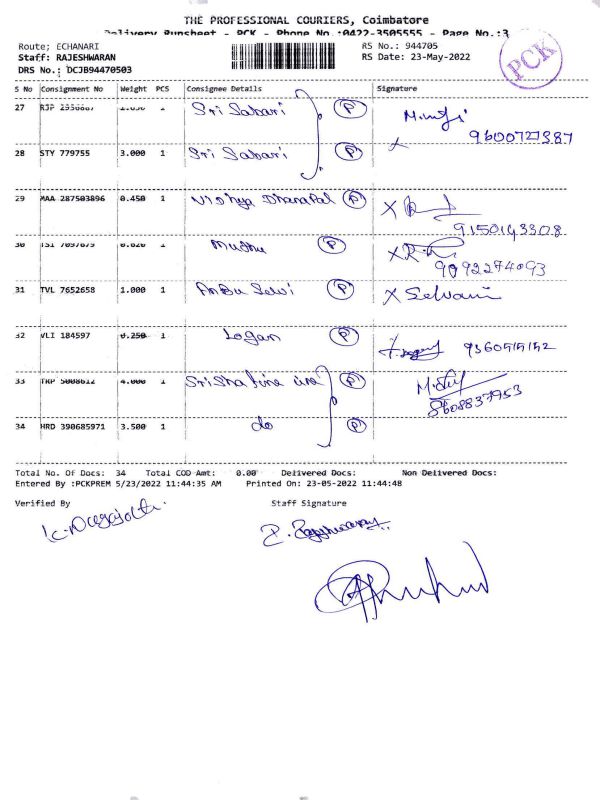 THE PROFESSIONAL COURIERS, Coimbatore
Delivery Runsheet - PCK - Phone No.:0422-3505555 - Page No.:3
Route; ECHANARI
Staff: RAJESHWARAN
DRS No.: DCJB94470503
RS No.: 944705
RS Date: 23-May-2022
PCK
S No Consignment No Weight PCS Consignee Details Signature
27 RJP 1 Sri Sabari P
9600727387
28 STY 779755 3.000 1 Sri Sabari P
29 MAA 287503896 0.450 1 Vidhya Dhanapal P
9150143308
30 TSI 7097679 0.620 1 Mudhu P
9092274093
31 TVL 7652658 1.000 1 Anbu Selvi P X Selvani
32 VLI 184597 0.250 1 Logan P
33 TRP 5008612 4.000 1 P
8608837953
34 HRD 390685971 3.500 1 do P
Total No. Of Docs: 34 Total COD Amt: 0.00 Delivered Docs: Non Delivered Docs:
Entered By :PCKPREM 5/23/2022 11:44:35 AM Printed On: 23-05-2022 11:44:48
Verified By Staff Signature